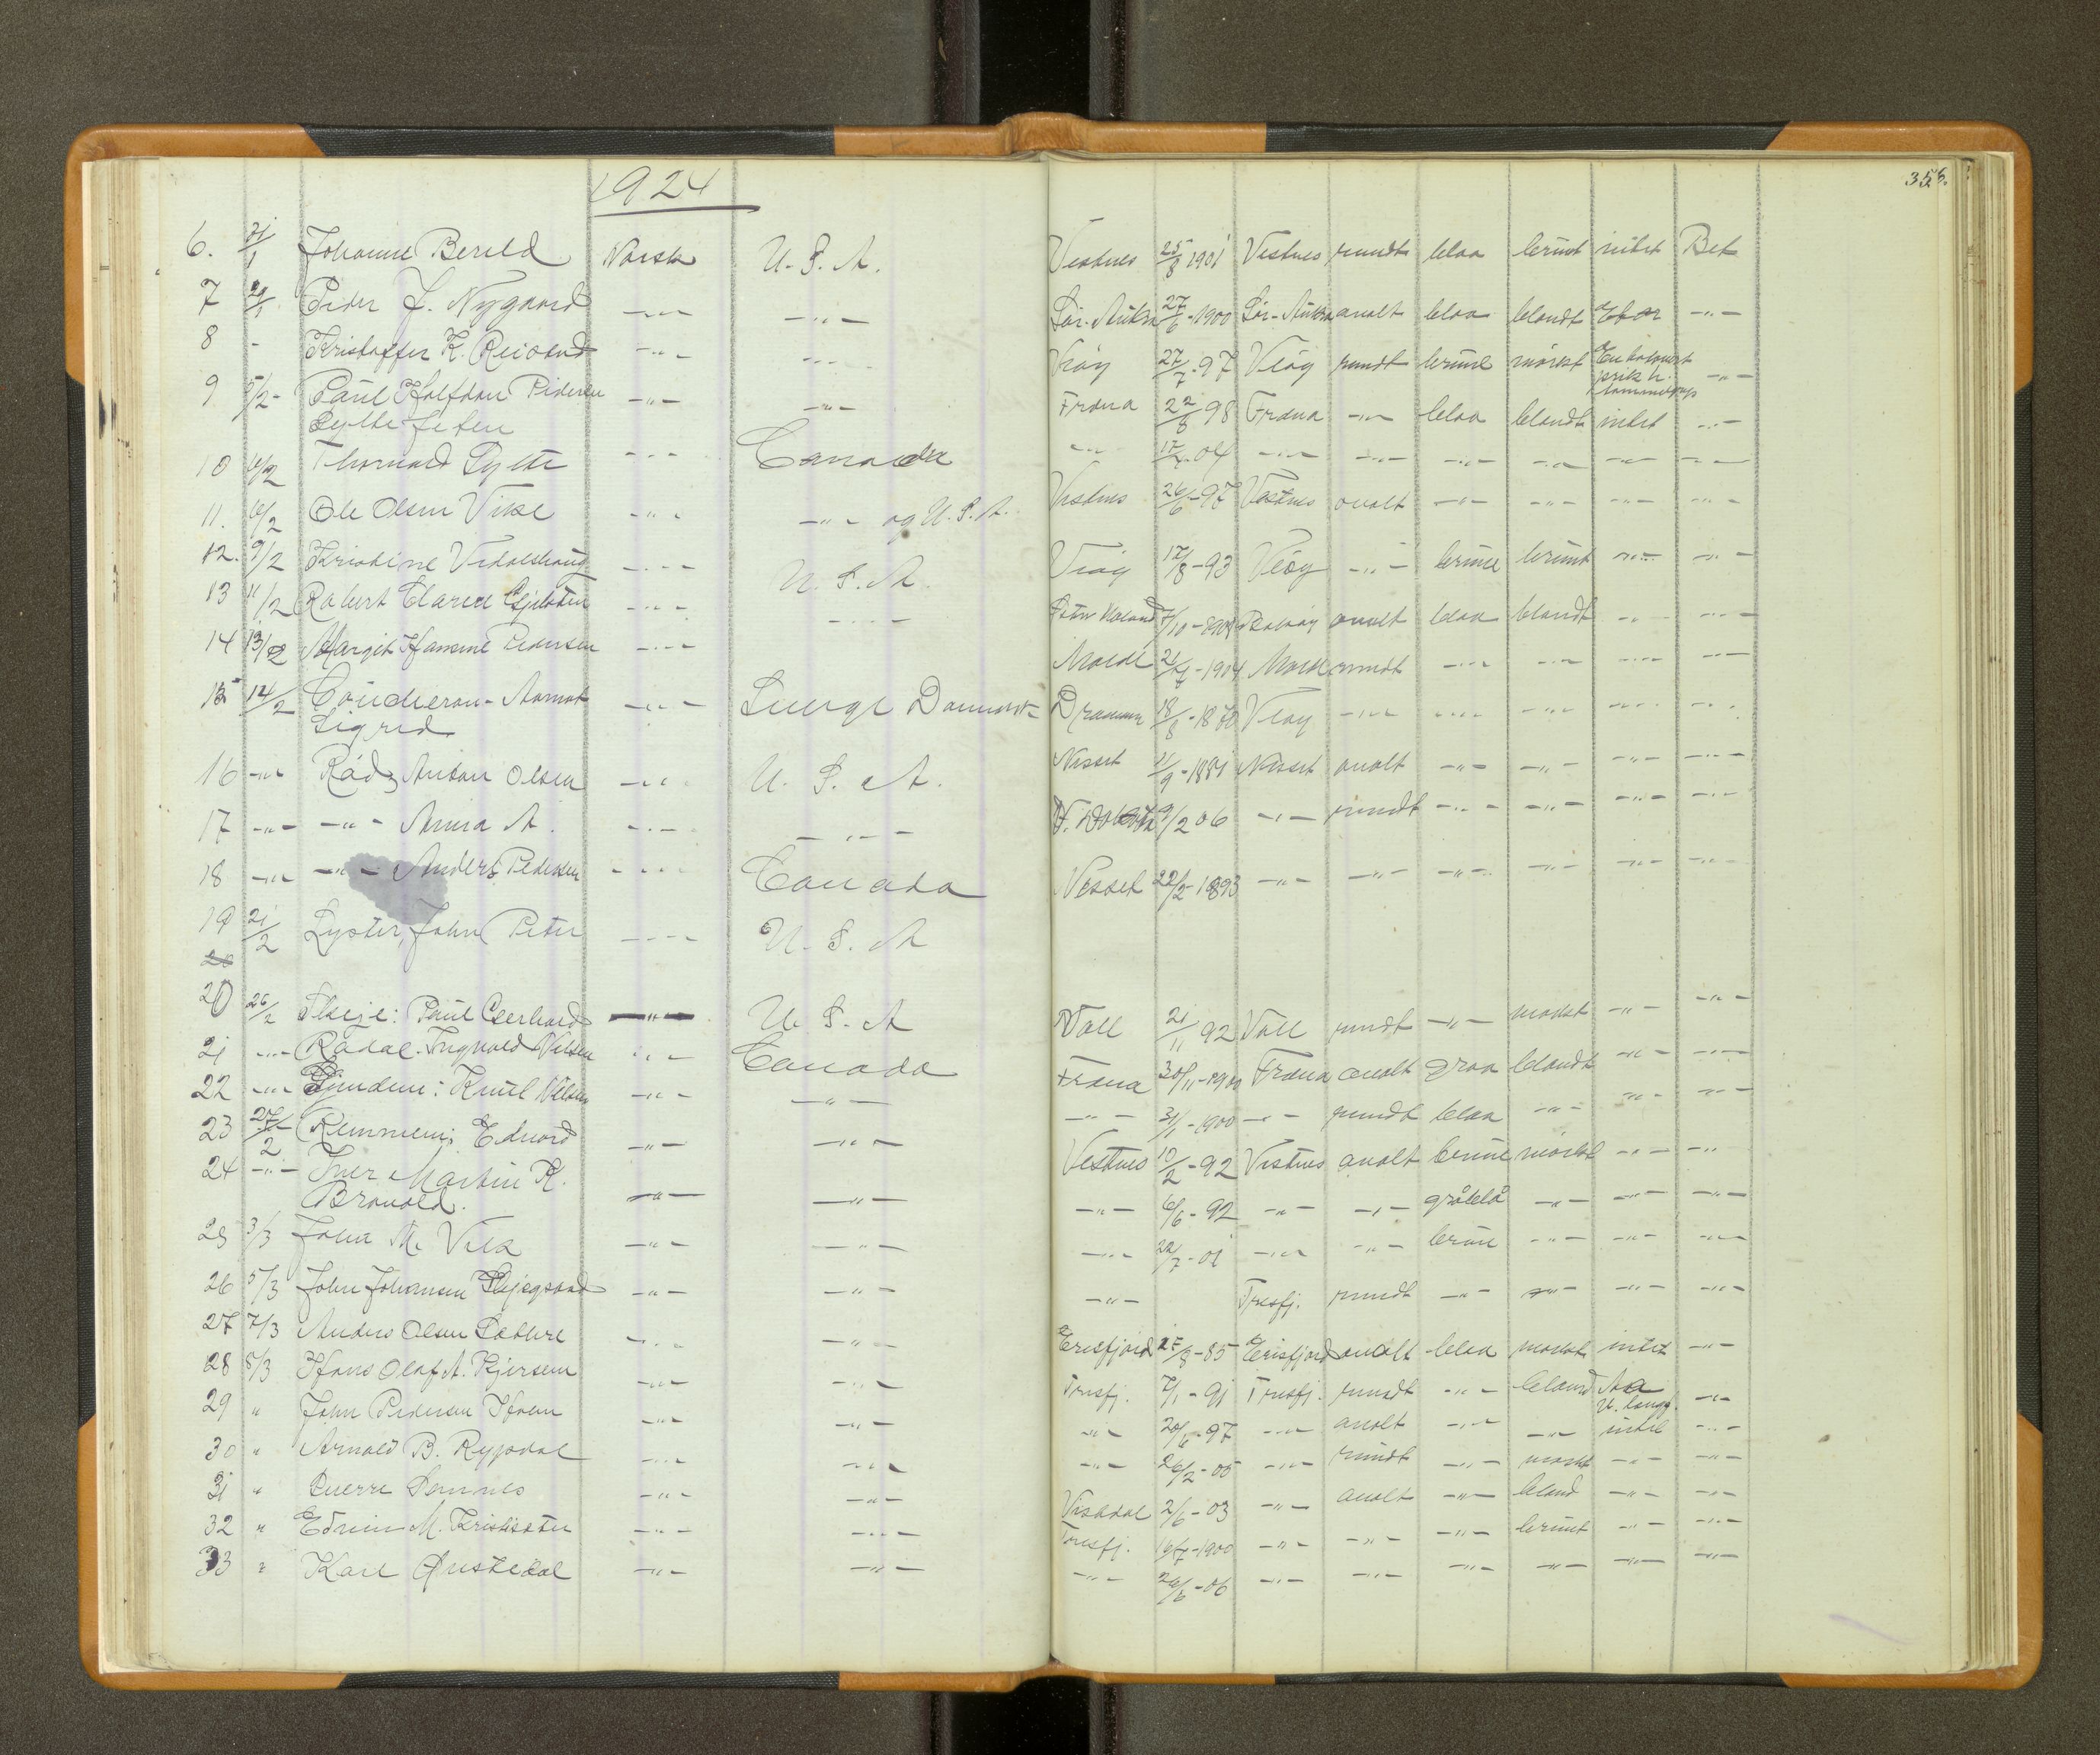 1924
356.
6. 21/1 Johanne Bereld Norsk U.S.A. Vestnes 25/8 1901 Vestnes rundt blaa brunt intet Bet
7 29/1 Peder J. Nygaard -"- -"- Sør-Aukra 27/6-1900 Sør-Aukra ovalt blaa blondt -"-
8 - Kristoffer K. -"- -"- Veøy 27/7-97 Veøy rundt brune mørkt
prik h. -"-
9 5/2- Paul Halfdan Pedersen -"- -"- Fræna 22/8 98 Fræna -"- blaa blondt intet -"-
Sylteseten
10 6/2 Thorvald Sylte -"- Canada -"- 17/4-04 -"- -"- -"- -"- -"- -"-
11. 6/2 Ole Olsen Vike -"- -"- og U.S.A. Vestnes 26/6-97 Vestnes ovalt -"- -"- -"- -"-
12. 9/2 Kristine Vedalshaug -"- U.S.A. Veøy 17/8-93 Veøy -"- brune brunt -"- -"-
13 11/2 Robert Clarence Gjelsten -"- -"- 7/10- Bolsøy ovalt blaa blondt -"- -"-
14 13/2 Margit Hansine Pedersen -"- Molde 21/4-1904 Molde rundt -"- -"- -"- -"-
15 14/2 Coucheron-Aamot -"- Sverge Danmark Drammen 18/8-1870 Veøy -"- -"- -"- -"- -"-
Sigrid
16 -"- Rød, Anton Olsen -"- U.S.A. Nesset 11/9-1881 Nesset ovalt -"- -"- -"- -"-
17 -"- -"- Anna A. -"- -"- N. Dakota 9/2 06 -"- rundt -"- -"- -"- -"-
18 -"- -"- Anders Pedersen -"- Canada Nesset 22/2-1893 -"- -"- -"- -"- -"- -"-
19 21/2 Lyster, John Peter -"- U.S.A
20
20 26/2 Skeje: Paul Gerhard -"- U.S.A Voll 21/11 92 Voll rundt -"- mørkt -"- -"-
21 -"- Rødal. Ingvald Nilsen -"- Canada Fræna 30/11-1900 Fræna ovalt graa blondt -"- -"-
22 -"- : Knut Nilsen -"- -"- -"- 31/1-1900 -"- rundt blaa -"- -"- -"-
23 27/2 Remmem; Edvard -"- -"- Vestnes 10/2-92 Vestnes ovalt brune mørkt -"- -"-
24 -"- Iver Martin K. -"- -"- -"- 6/6-92 -"- -"- gråblå -"- -"- -"-
Brovold.
25 3/3 Johan M. Vik -"- -"- -"- 22/7-01 -"- -"- brun -"- -"- -"-
26 5/3 John Johansen -"- -"- -"- Tresfj. rundt -"- -"- -"- -"-
27 7/3 Anders Olsen Sæthre -"- -"- Eresfjord 27/8-85 Eresfjord ovalt blaa mørkt intet -"-
28 8/3 Hans Olaf A. Kjersem -"- -"- Tresfj. 7/1-91 Tresfj. rundt -"- blond
-"-
29 " John Pedersen Hoem -"- -"- -"- 20/6-97 -"- ovalt -"- -"- intet -"-
30 " Arnold B. Rypdal -"- -"- -"- 26/2-05 -"- rundt -"- mørkt -"- -"-
31 " Sverre Semnes -"- -"- Visdal 2/6-03 -"- ovalt -"- blond -"- -"-
32 " Edvin M. Kristisæter -"- -"- Tresfj. 16/7-1900 -"- -"- -"- brunt -"- -"-
33 " Karl -"- -"- -"- 26/6-06 -"- -"- -"- -"- -"- -"-